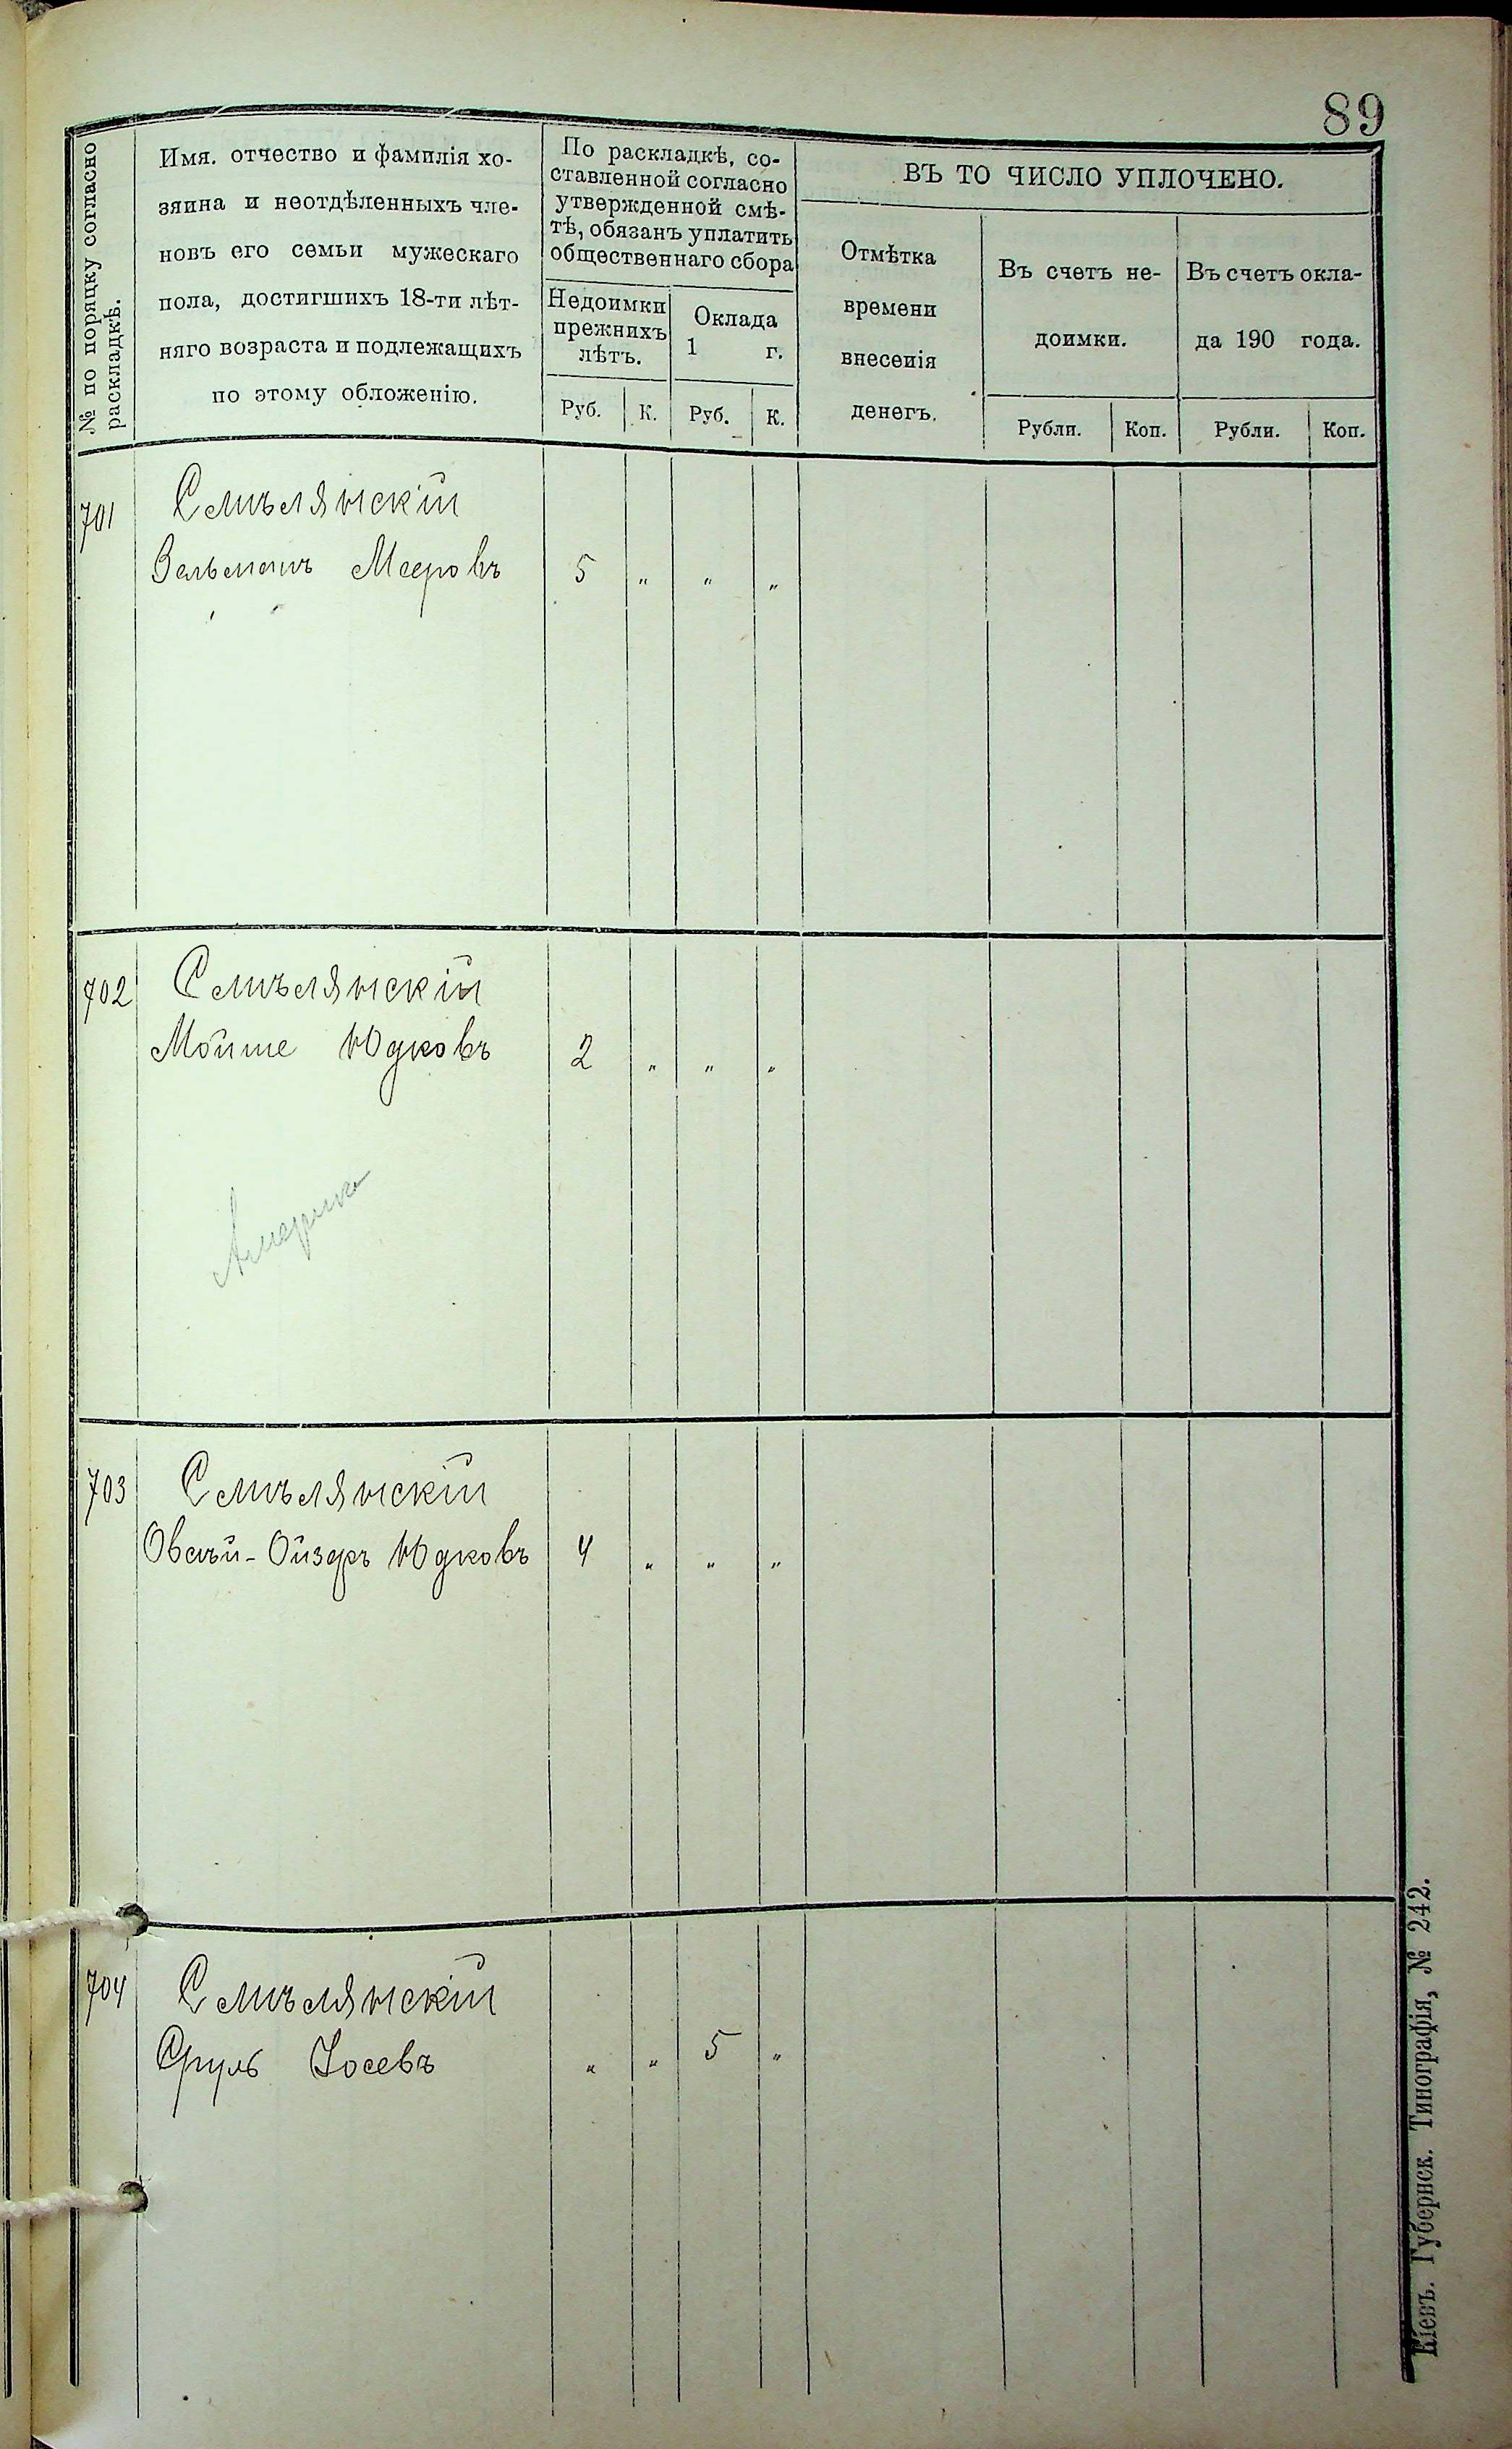 89
№ по поряцку согласно
раскладкѣ.
Имя. отчество и фамилія хо-
зяина и неотдѣленныхъ чле-
новъ его семьи мужескаго
пола, достигшихъ 18-ти лѣт-
няго возраста и подлежащихъ
по этому обложенію.
По раскладкѣ, со-
ставленной согласно
утвержденной смѣ-
тѣ, обязанъ уплатить
общественнаго сбора
Недоимки
прежнихъ
лѣтъ.
Оклада
1 г.
Руб. К. Руб. К.
ВЪ ТО ЧИСЛО УПЛОЧЕНО.
Отмѣтка
времени
внесенія
денегъ.
Въ счетъ не-
доимки.
Въ счетъ окла-
да 190 года.
Рубли. Коп. Рубли. Коп.
701 Смѣлянскій
Зельманъ Мееровъ 5 „ „ „
702 Смѣлянскій
Мойше Юдковъ 2 „ „ „
Америка
703 Смѣлянскій
Овсѣй-Ойзеръ Юдковъ 4 „ „ „
704 Смѣлянскій
Сруль Іосевъ „ „ 5 „
Кіевъ. Губернск. Типографія, № 242.